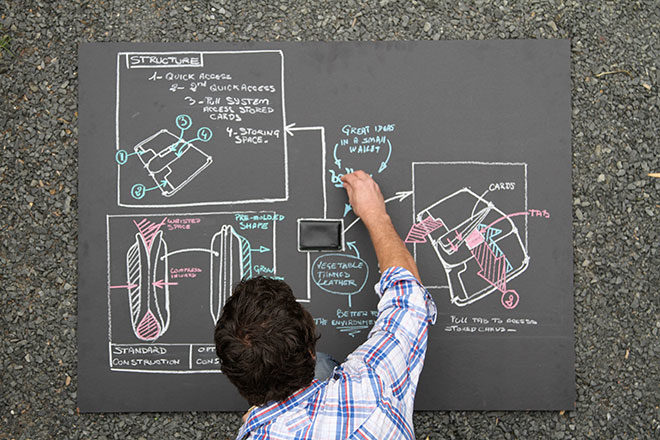 STRUCTURE
1- QUICK ACCESS
2- 2nd QUICK ACCESS
3- PULL SYSTEM
ACCESS STORED
CARDS
4- STORING
SPACE.
1
3
4
2
GREAT IDEAS
IN A SMALL
WALLET
CARDS
TAB
PULL TAB TO ACCESS
STORED CARDS.
WAISTED
SPACE
PRE-MOLDED
SHAPE
COMPRESS
INWARD
STANDARD
CONSTRUCTION
VEGETABLE
TANNED
LEATHER
BETTER
THE ENVIRONMENT